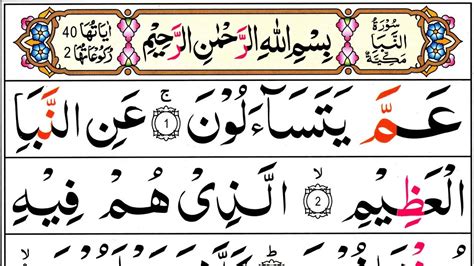 سُوْرَةُ
النَّبَاِ
مَكِّيَّةٌ
بِسْمِ اللّٰهِ الرَّحْمٰنِ الرَّحِيْمِ
اٰيَاتُهَا 40
رُكُوْعَاتُهَا 2
عَمَّ يَتَسَآءَلُوْنَ ۚ 1 عَنِ النَّبَاِ
الْعَظِيْمِ ۙ 2 الَّذِىْ هُمْ فِيْهِ